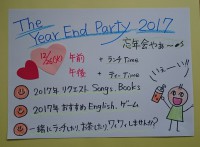 The
Year End Party 2017
忘年会やぁ〜る
12/25(月) 午前 ランチTime
午後 ティーTime
いぇーい!!
2017年 リクエスト Songs, Books
2017年 おすすめ English, ゲーム
一緒にランチしたり、お茶したり、ワイワイしませんか?